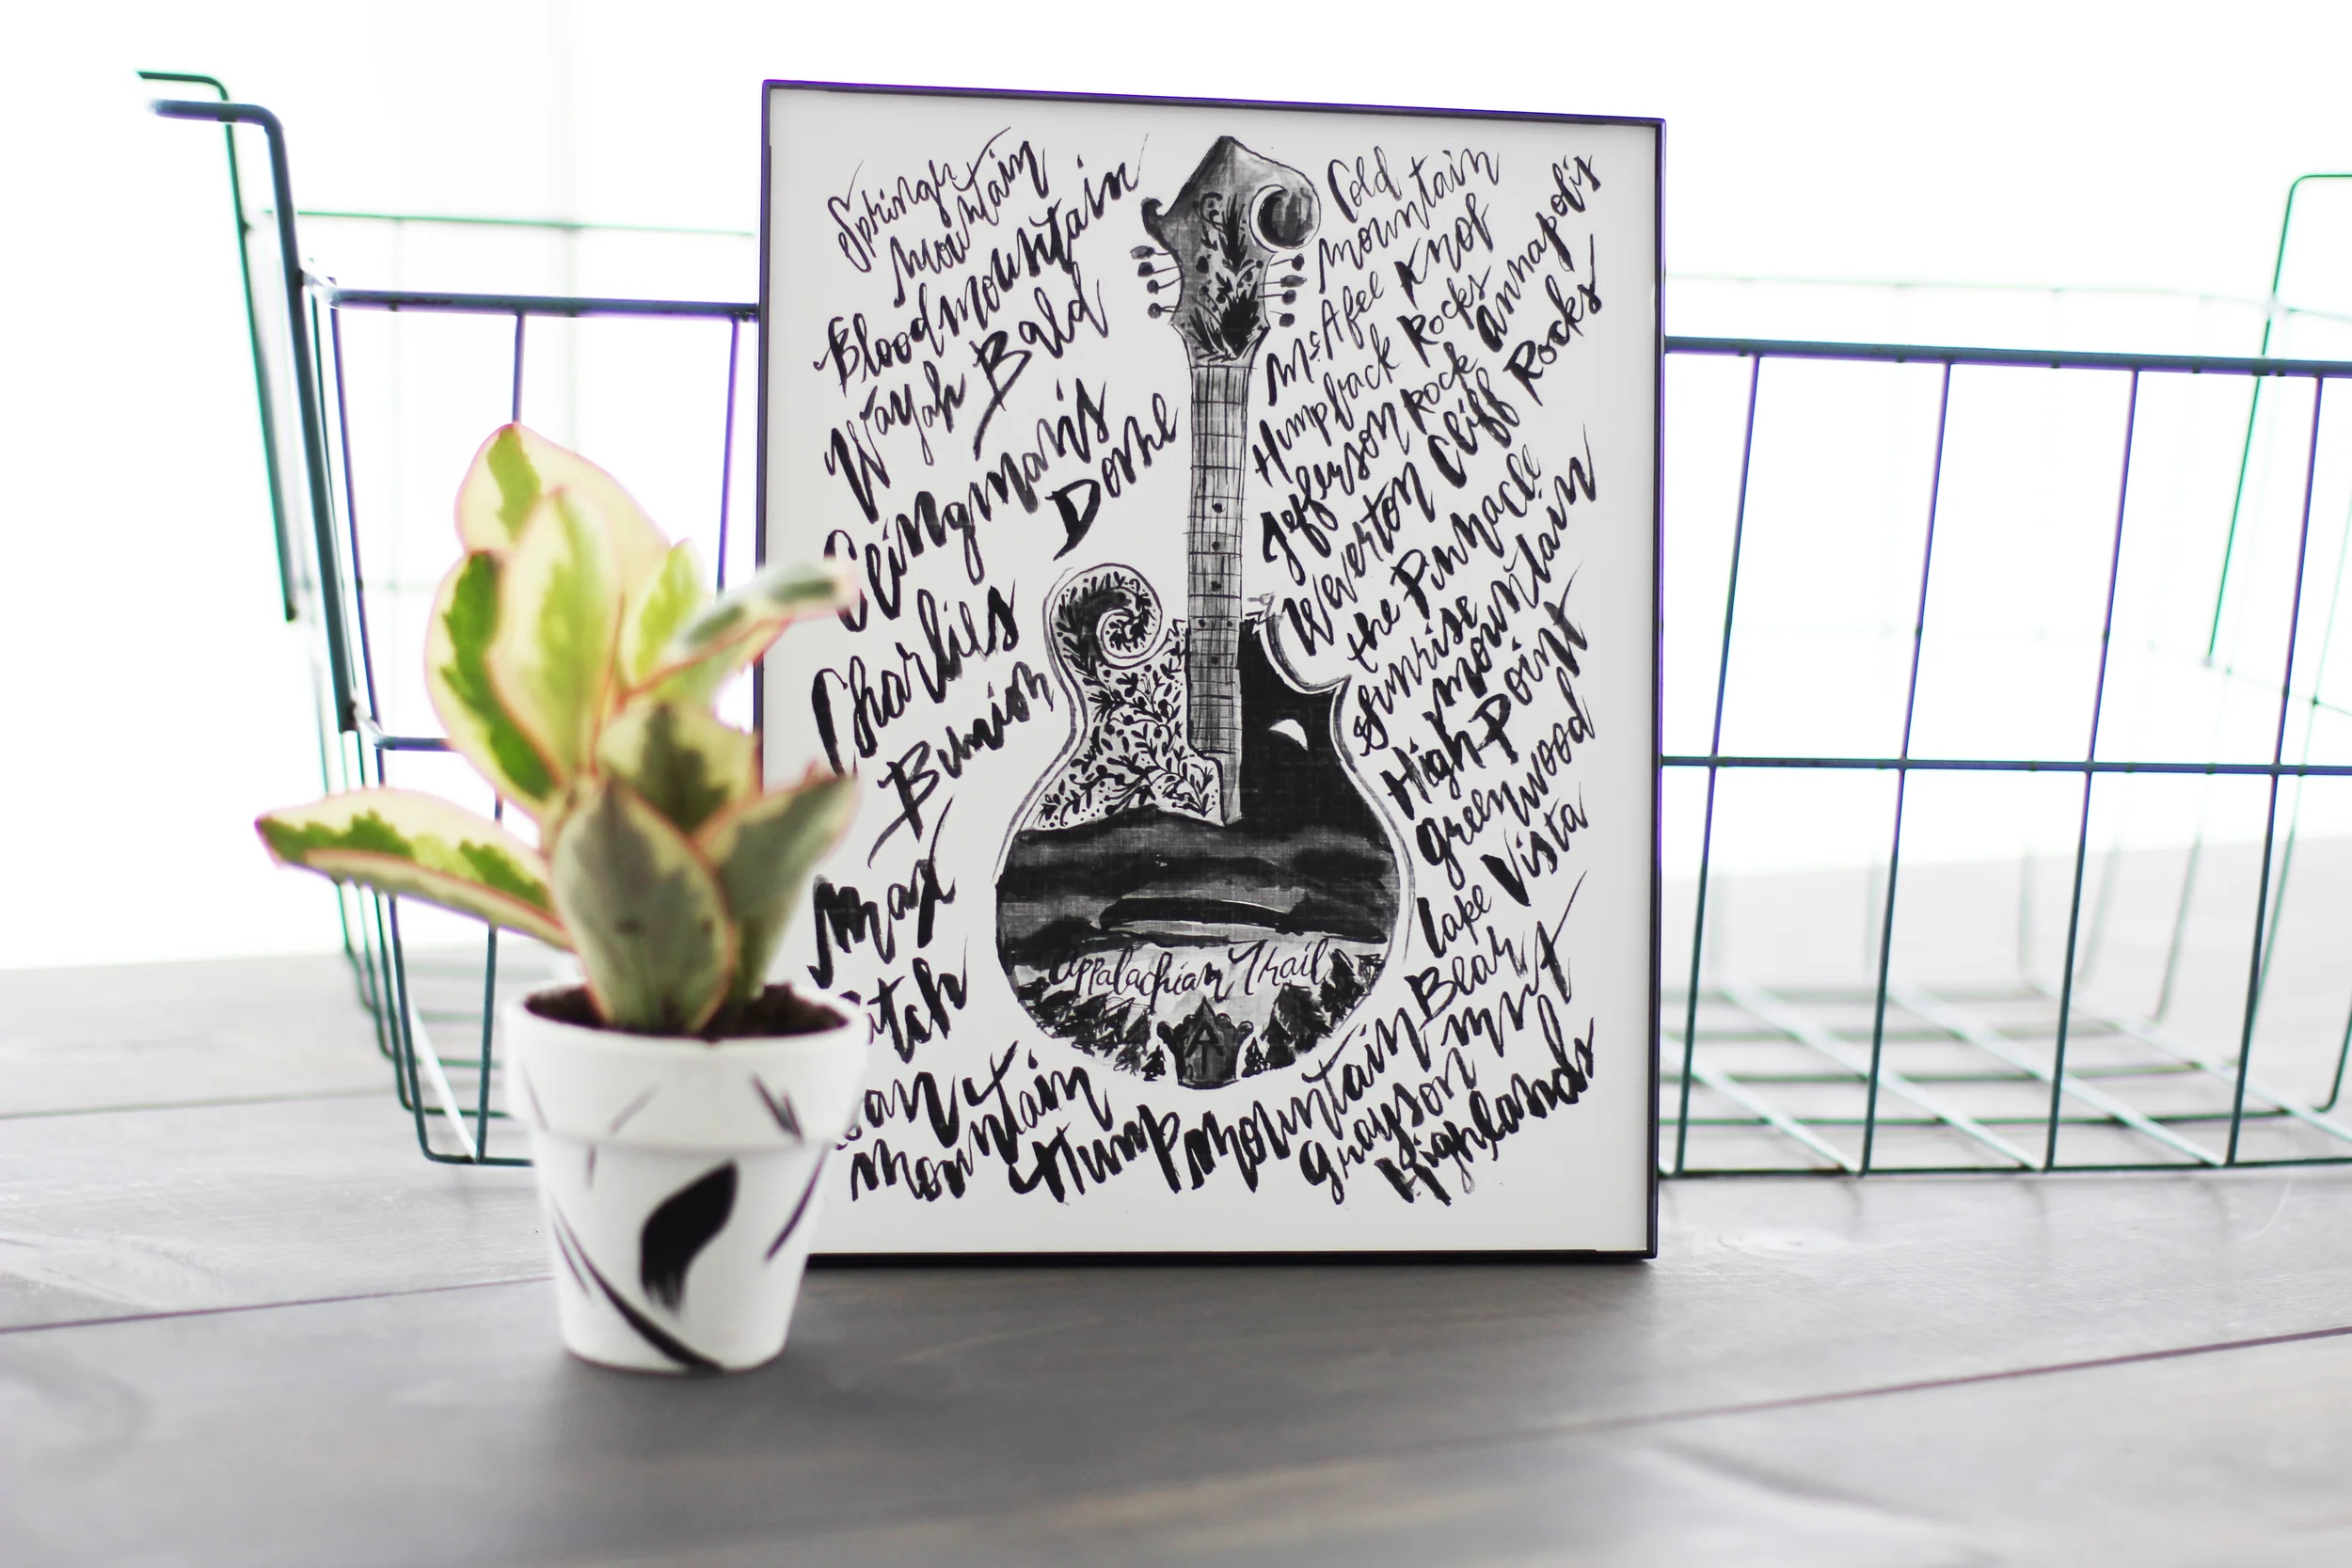 Springer
Mountain
Blood mountain
Wayah Bald
Clingman's
Dome
Charlies
Bunion
Max
atch
oan
mountain
Hump mountain
Grayson
Highlands
Cold
mountain
McAfee Knob
Humpback Rocks
Jefferson Rock annapolis
Weverton Cliff Rocks
the Pinnacle
Sunrise
mountain
High Point
greenwood
Lake Vista
Bear
mnt
Appalachian Trail
AT